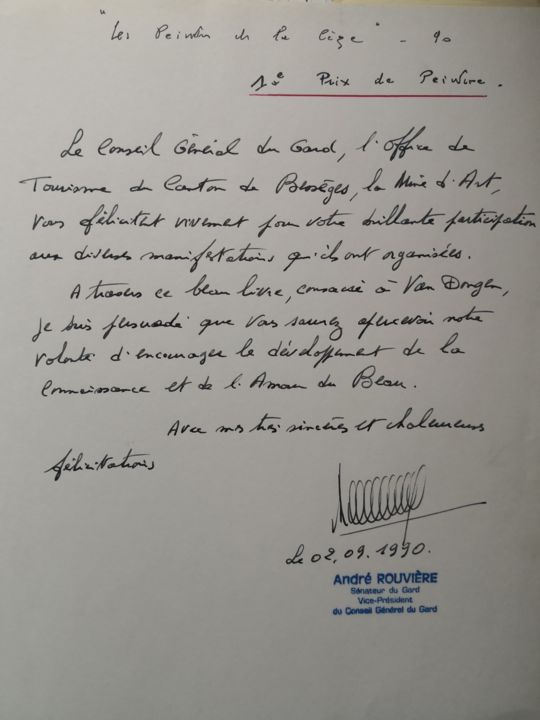 "Les Peintres de la Cèze" - 90
1e Prix de Peinture.
Le Conseil Général du Gard, l'Office de
Tourisme du Canton de Bessèges, la Mine d'Art,
vous félicitent vivement pour votre brillante participation
aux diverses manifestations qu'ils ont organisées.
A travers ce beau livre, consacré à Van Dongen,
je suis persuadé que vous saurez apercevoir notre
volonté d'encourager le développement de la
Connaissance et de l'Amour du Beau.
Avec mes très sincères et chaleureuses
félicitations
Le 02.09.1990.
André ROUVIÈRE
Sénateur du Gard
Vice-Président
du Conseil Général du Gard